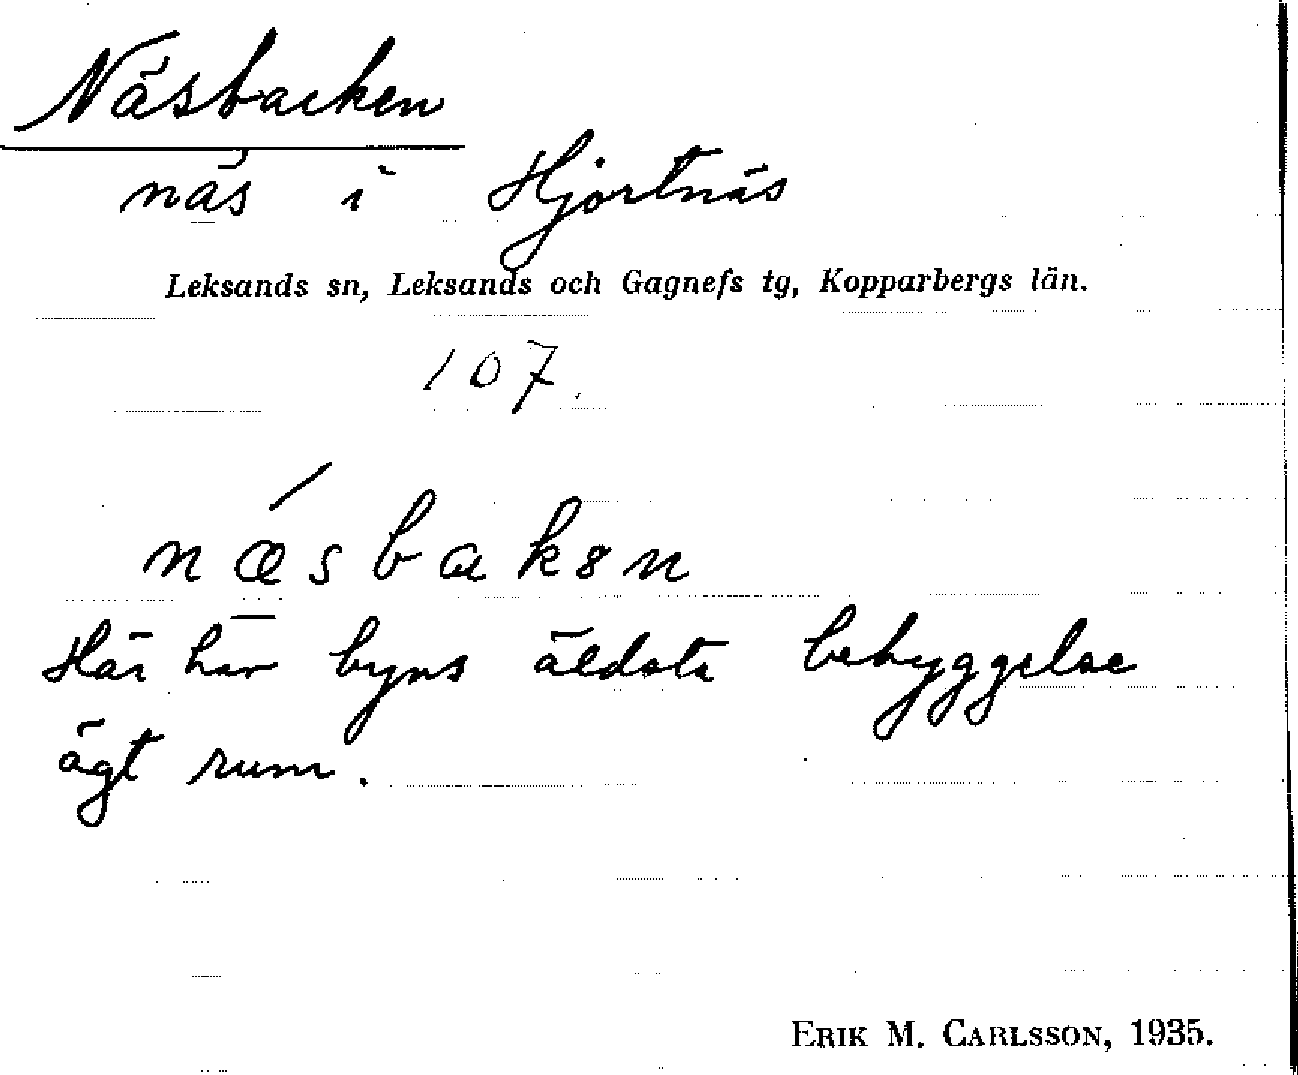 Näsbacken
näs i Hjortnäs
Leksands sn, Leksands och Gagnefs tg, Kopparbergs län.
107.
næ´sbakən
Här har byns äldsta bebyggelse
ägt rum.
ERIK M. CARLSSON, 1935.